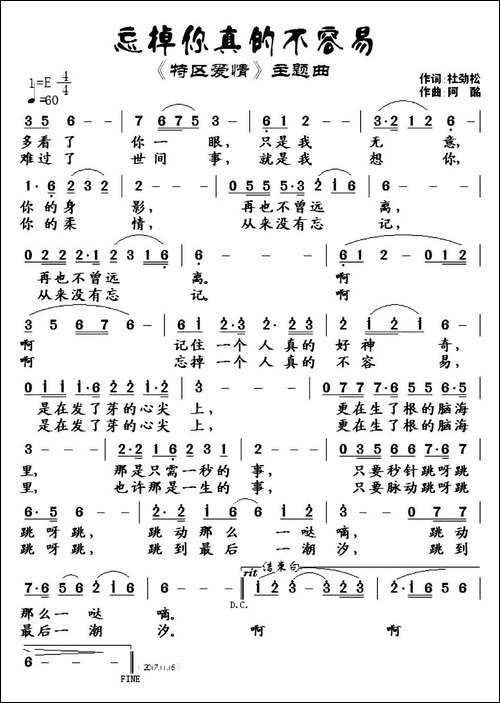 忘掉你真的不容易
《特区爱情》主题曲
1=E 4/4
♩=60
作词:杜劲松
作曲:阿 酩
3 5 6 - - | 7 6 7 5 3 - - | 0 5 1 2 - - | 3·2 1 2 6 - |
多看了 你一眼, 只是我 无意,
难过了 世间事, 就是我 想你,
1·6 2 3 2 | 2 - - - | 0 5 5 5 5·3 2 1 6 | 6 - - - |
你的身 影, 再也不曾远 离,
你的柔 情, 从来没有忘 记,
0 2 2 2 2·1 2 3 1 6 | 6 - - - | 6 1 2 - - 0 1 |
再也不曾远 离。 啊
从来没有忘 记。 啊
3 5 6 7 6 - | 6 1 2·3 2·2 2 3 | 1 2 1 - - |
啊 记住一个人真的 好神奇,
啊 忘掉一个人真的 不容易,
0 1 1 1 1·6 2 2 1·2 | 3 - - - | 0 7 7 7 7·6 5 6 5 |
是在发了芽的心尖 上, 更在生了根的脑海
是在发了芽的心尖 上, 更在生了根的脑海
3 - - - | 2·2 1 6 2 3 1 | 2 - - - | 0 3 5 6 6·7 6 7 |
里, 那是只需一秒的 事, 只要秒针跳呀跳
里, 也许那是一生的 事, 只要脉动跳呀跳
跳呀跳, 跳动那么 一 哒 嘀, 跳动
跳呀跳, 跳到最后 一 潮 汐, 跳到
rit 结束句
D.C.
那么一 哒 嘀。
最后一 潮 汐。 啊 啊
6 - - -
FINE
2017.11.16